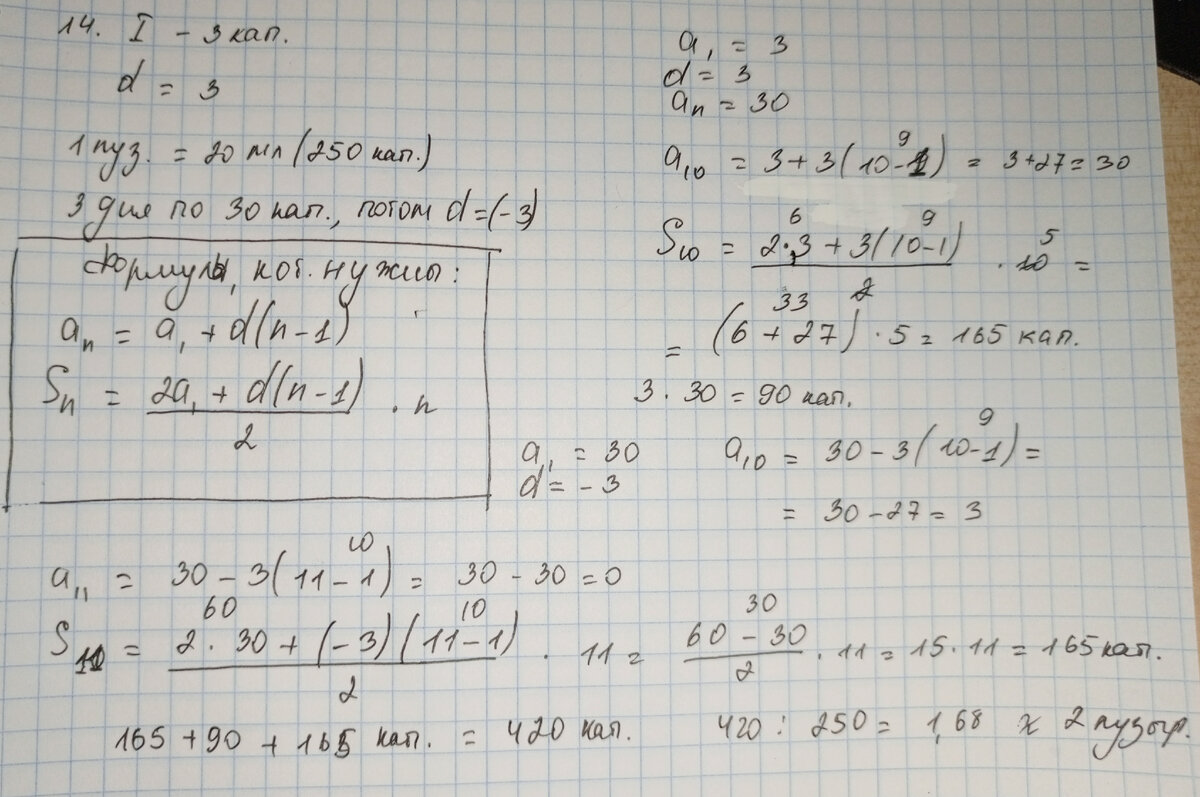 14. I – 3 кап.
d = 3
1 пуз. = 20 мл (250 кап.)
3 дня по 30 кап., потом d = (-3)
Формулы, кот. нужны:
aₙ = a₁ + d(n-1)
Sₙ = (2a₁ + d(n-1)) / 2 · n
a₁ = 3
d = 3
aₙ = 30
9
a₁₀ = 3 + 3(10-1) = 3+27 = 30
6 9 5
S₁₀ = (2·3 + 3(10-1)) / 2 · 10 =
33
= (6 + 27) · 5 = 165 кап.
3 · 30 = 90 кап.
a₁ = 30
d = -3
9
a₁₀ = 30 - 3(10-1) =
= 30 - 27 = 3
10
a₁₁ = 30 - 3(11-1) = 30 - 30 = 0
60 10 30
S₁₁ = (2 · 30 + (-3)(11-1)) / 2 · 11 = (60 - 30) / 2 · 11 = 15 · 11 = 165 кап.
165 + 90 + 165 кап. = 420 кап.
420 : 250 = 1,68 ≈ 2 пузыр.